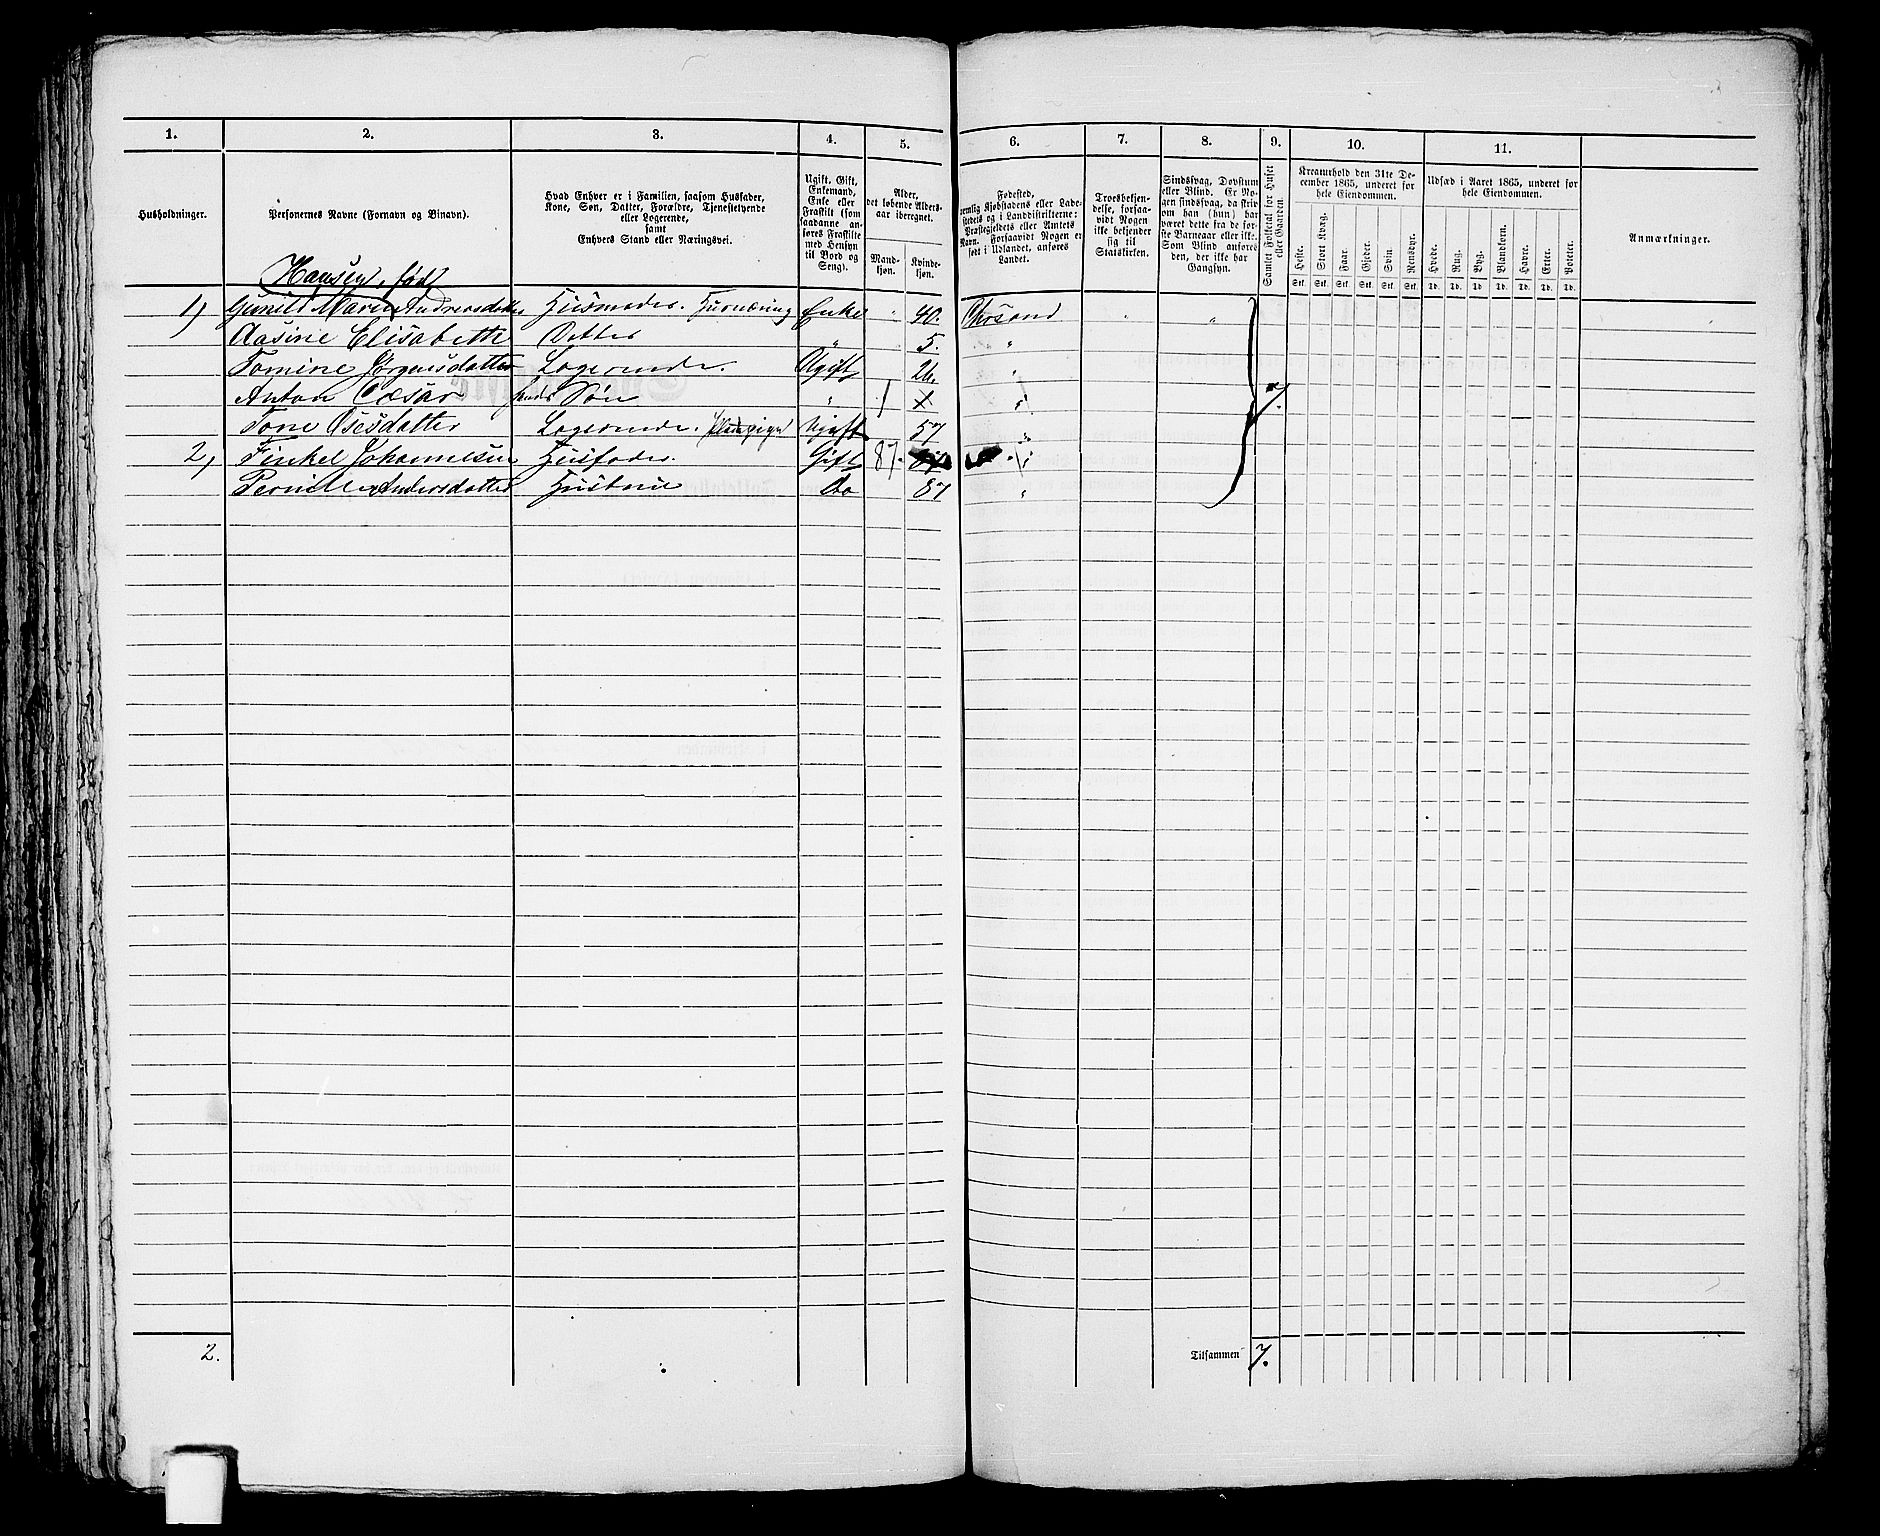 1.
2.
3.
4.
5.
6.
7.
8.
9.
10.
11.
Husholdninger.
Personernes Navne (Fornavn og Binavn).
Hvad Enhver er i Familien, saasom Husfader,
Kone, Søn, Datter, Forældre, Tjenestetyende
eller Logerende,
samt
Enhvers Stand eller Næringsvei.
Ugift, Gift,
Enkemand,
Enke eller
Fraskilt (som
saadanne an-
føres Fraskilte
med Hensyn
til Bord og
Seng).
Alder,
det løbende Alders-
aar iberegnet.
Mand-
kjøn.
Kvinde-
kjøn.
Fødested,
nemlig Kjøbstadens eller Lade-
stedets og i Landdistrikterne:
Præstegjeldets eller Amtets
Navn. Forsaavidt Nogen er
født i Udlandet, anføres
Landet.
Troesbekjen-
delse, forsaa-
vidt Nogen
ikke bekjender
sig til
Statskirken.
Sindssvag, Døvstum
eller Blind. Er No-
gen sindssvag, da skriv
om han (hun) har
været dette fra de før-
ste Barneaar eller ikke.
Som Blind anføres
den, der ikke har
Gangsyn.
Samlet Folketal for Huset
eller Gaarden.
Kreaturhold den 31te De-
cember 1865, underet for
hele Eiendommen.
Heste.
Stort Kvæg.
Faar.
Gjeder.
Svin.
Rensdyr.
Stk. Stk. Stk. Stk. Stk. Stk.
Udsæd i Aaret 1865, underet for
hele Eiendommen.
Hvede.
Rug.
Byg.
Blandkorn.
Havre.
Erter.
Poteter.
Td. Td. Td. Td. Td. Td. Td.
Anmærkninger.
Hansen, født
1) Gunild Maren Andreasdatter Husmoder. Enke " 40. Chrsand " "
Aasine Elisabeth Datter " " 5. "
Tomine Jørgensdatter Logerende. Ugift 26. "
Anton Cæsar hendes Søn " 1 1 " 7.
Tone Osesdatter Logerende. Ugift 57 "
2) Johannesen Husfader. Gift 87. "
Pernille Andersdatter Hustrue Do 87 "
2.
Tilsammen 7.